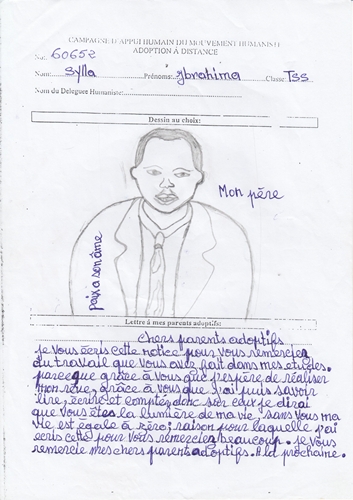 CAMPAGNE D'APPUI HUMAIN DU MOUVEMENT HUMANISTE
ADOPTION À DISTANCE
No: 60652
Nom: Sylla Prénoms: Ybrahima Classe: TSS
Nom du Délégué Humaniste:
Dessin au choix:
Mon père
paix a son âme
Lettre à mes parents adoptifs:
Chers parents adoptifs
je vous écris cette notice pour vous remerciez
du travail que vous avez fait dans mes etudes.
parceque grâce à vous que j'espère de réaliser
mon reve, grâce à vous que j'rai puis savoir
lire, écrire et comptez donc sur ceux je dirai
que vous êtes la lumière de ma vie sans vous ma
vie est égale à zéro; raison pour laquelle j'ai
ecris cette pour vous remerciez beaucoup. je vous
remercie mes chers parents adoptifs. A la prochaine.